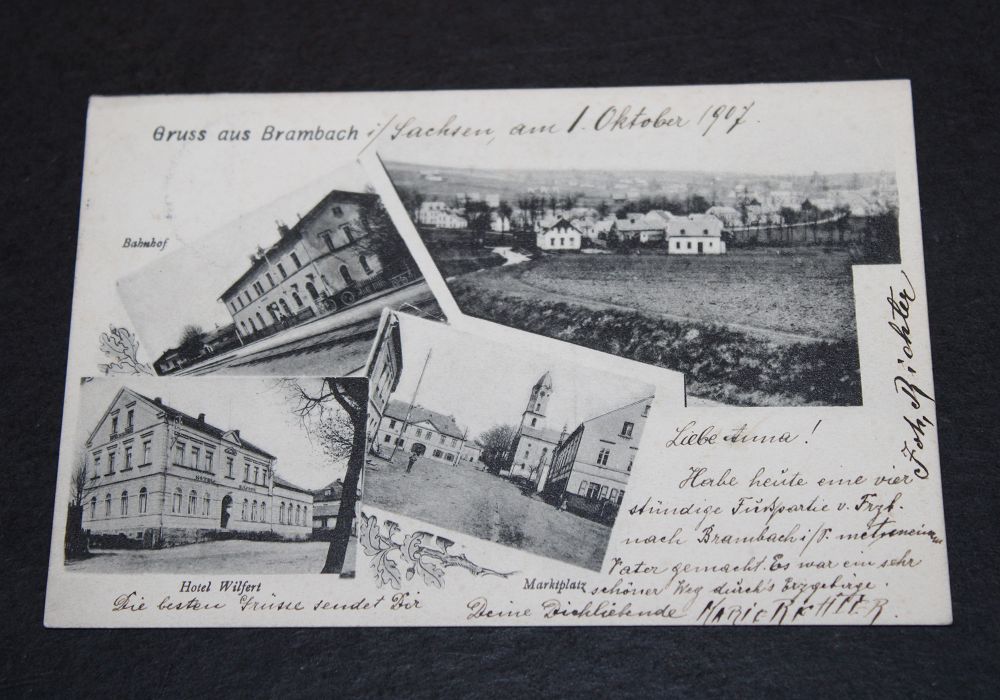 Gruss aus Brambach i/Sachsen, am 1. Oktober 1907.
Bahnhof
Joh. Richter
Liebe Anna!
Habe heute eine vier
stündige Fußpartie v. Frzb.
nach Brambach i/V. mit meinem
Vater gemacht. Es war ein sehr
schöner Weg durch's Erzgebirge.
Hotel Wilfert
Marktplatz
Die besten Grüsse sendet Dir
Deine Dichliebende MARIE RICHTER.